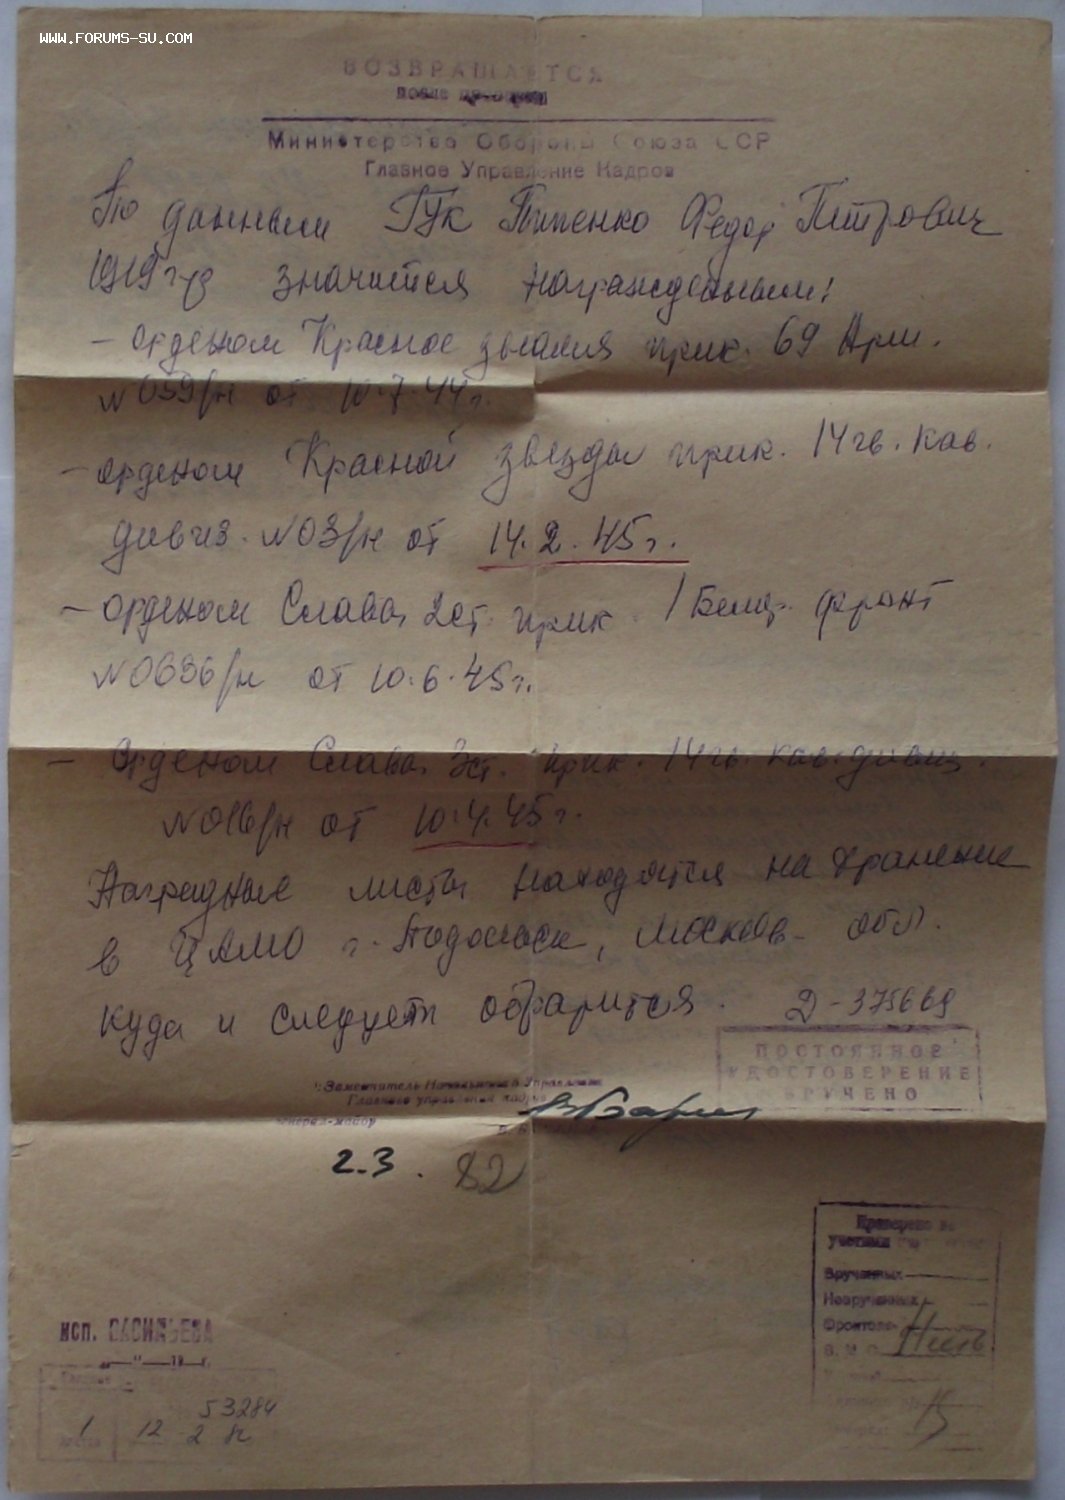 WWW.FORUMS-SU.COM
ВОЗВРАЩАЕТСЯ
Министерство Обороны Союза ССР
Главное Управление Кадров
По данным ГУК Федор Петрович
1919 г значится награжденным:
– орденом Красное знамя прик. 69 Арм.
N 059/н от 10.7.44 г.
– орденом Красной звезды прик. 14 гв. кав.
дивиз. N 03/н от 14.2.45 г.
– орденом Слава 2 ст. прик. 1 Белор. фронт
N 0636/н от 10.6.45 г.
– Орденом Слава 3 ст. прик. 14 гв. кав. дивиз.
N 016/н от 10.4.45 г.
Наградные листы находятся на хранение
в ЦАМО г. Подольск, Москов. обл.
куда и следует обратится. Д-375669
ПОСТОЯННОЕ
УДОСТОВЕРЕНИЕ
ВРУЧЕНО
Заместитель Начальника Управления
Главного управления кадров
генерал-майор
2.3.82
Проверено
учетным
Врученных
Неврученных
Фронтов
исп. ВАСИЛЬЕВА
„ " 19 г.
53284
1 12 2